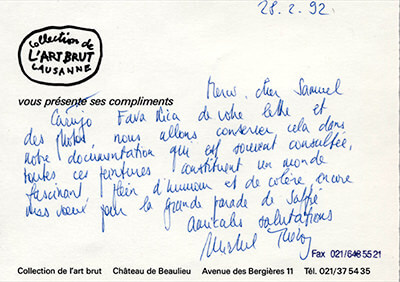 28. 2. 92.
Collection de
L'ART BRUT
LAUSANNE
Merci, cher Samuel
vous présente ses compliments
Carujo Fava Rica de votre lettre et
des photos, nous allons conserver cela dans
notre documentation qui est souvent consultée,
toutes ces peintures constituent un monde
fascinant plein d'humour et de colère encore
mes voeux pour la grande parade de
amicales salutations
Michel
Fax 021/648 55 21
Collection de l'art brut Château de Beaulieu Avenue des Bergières 11 Tél. 021/37 54 35